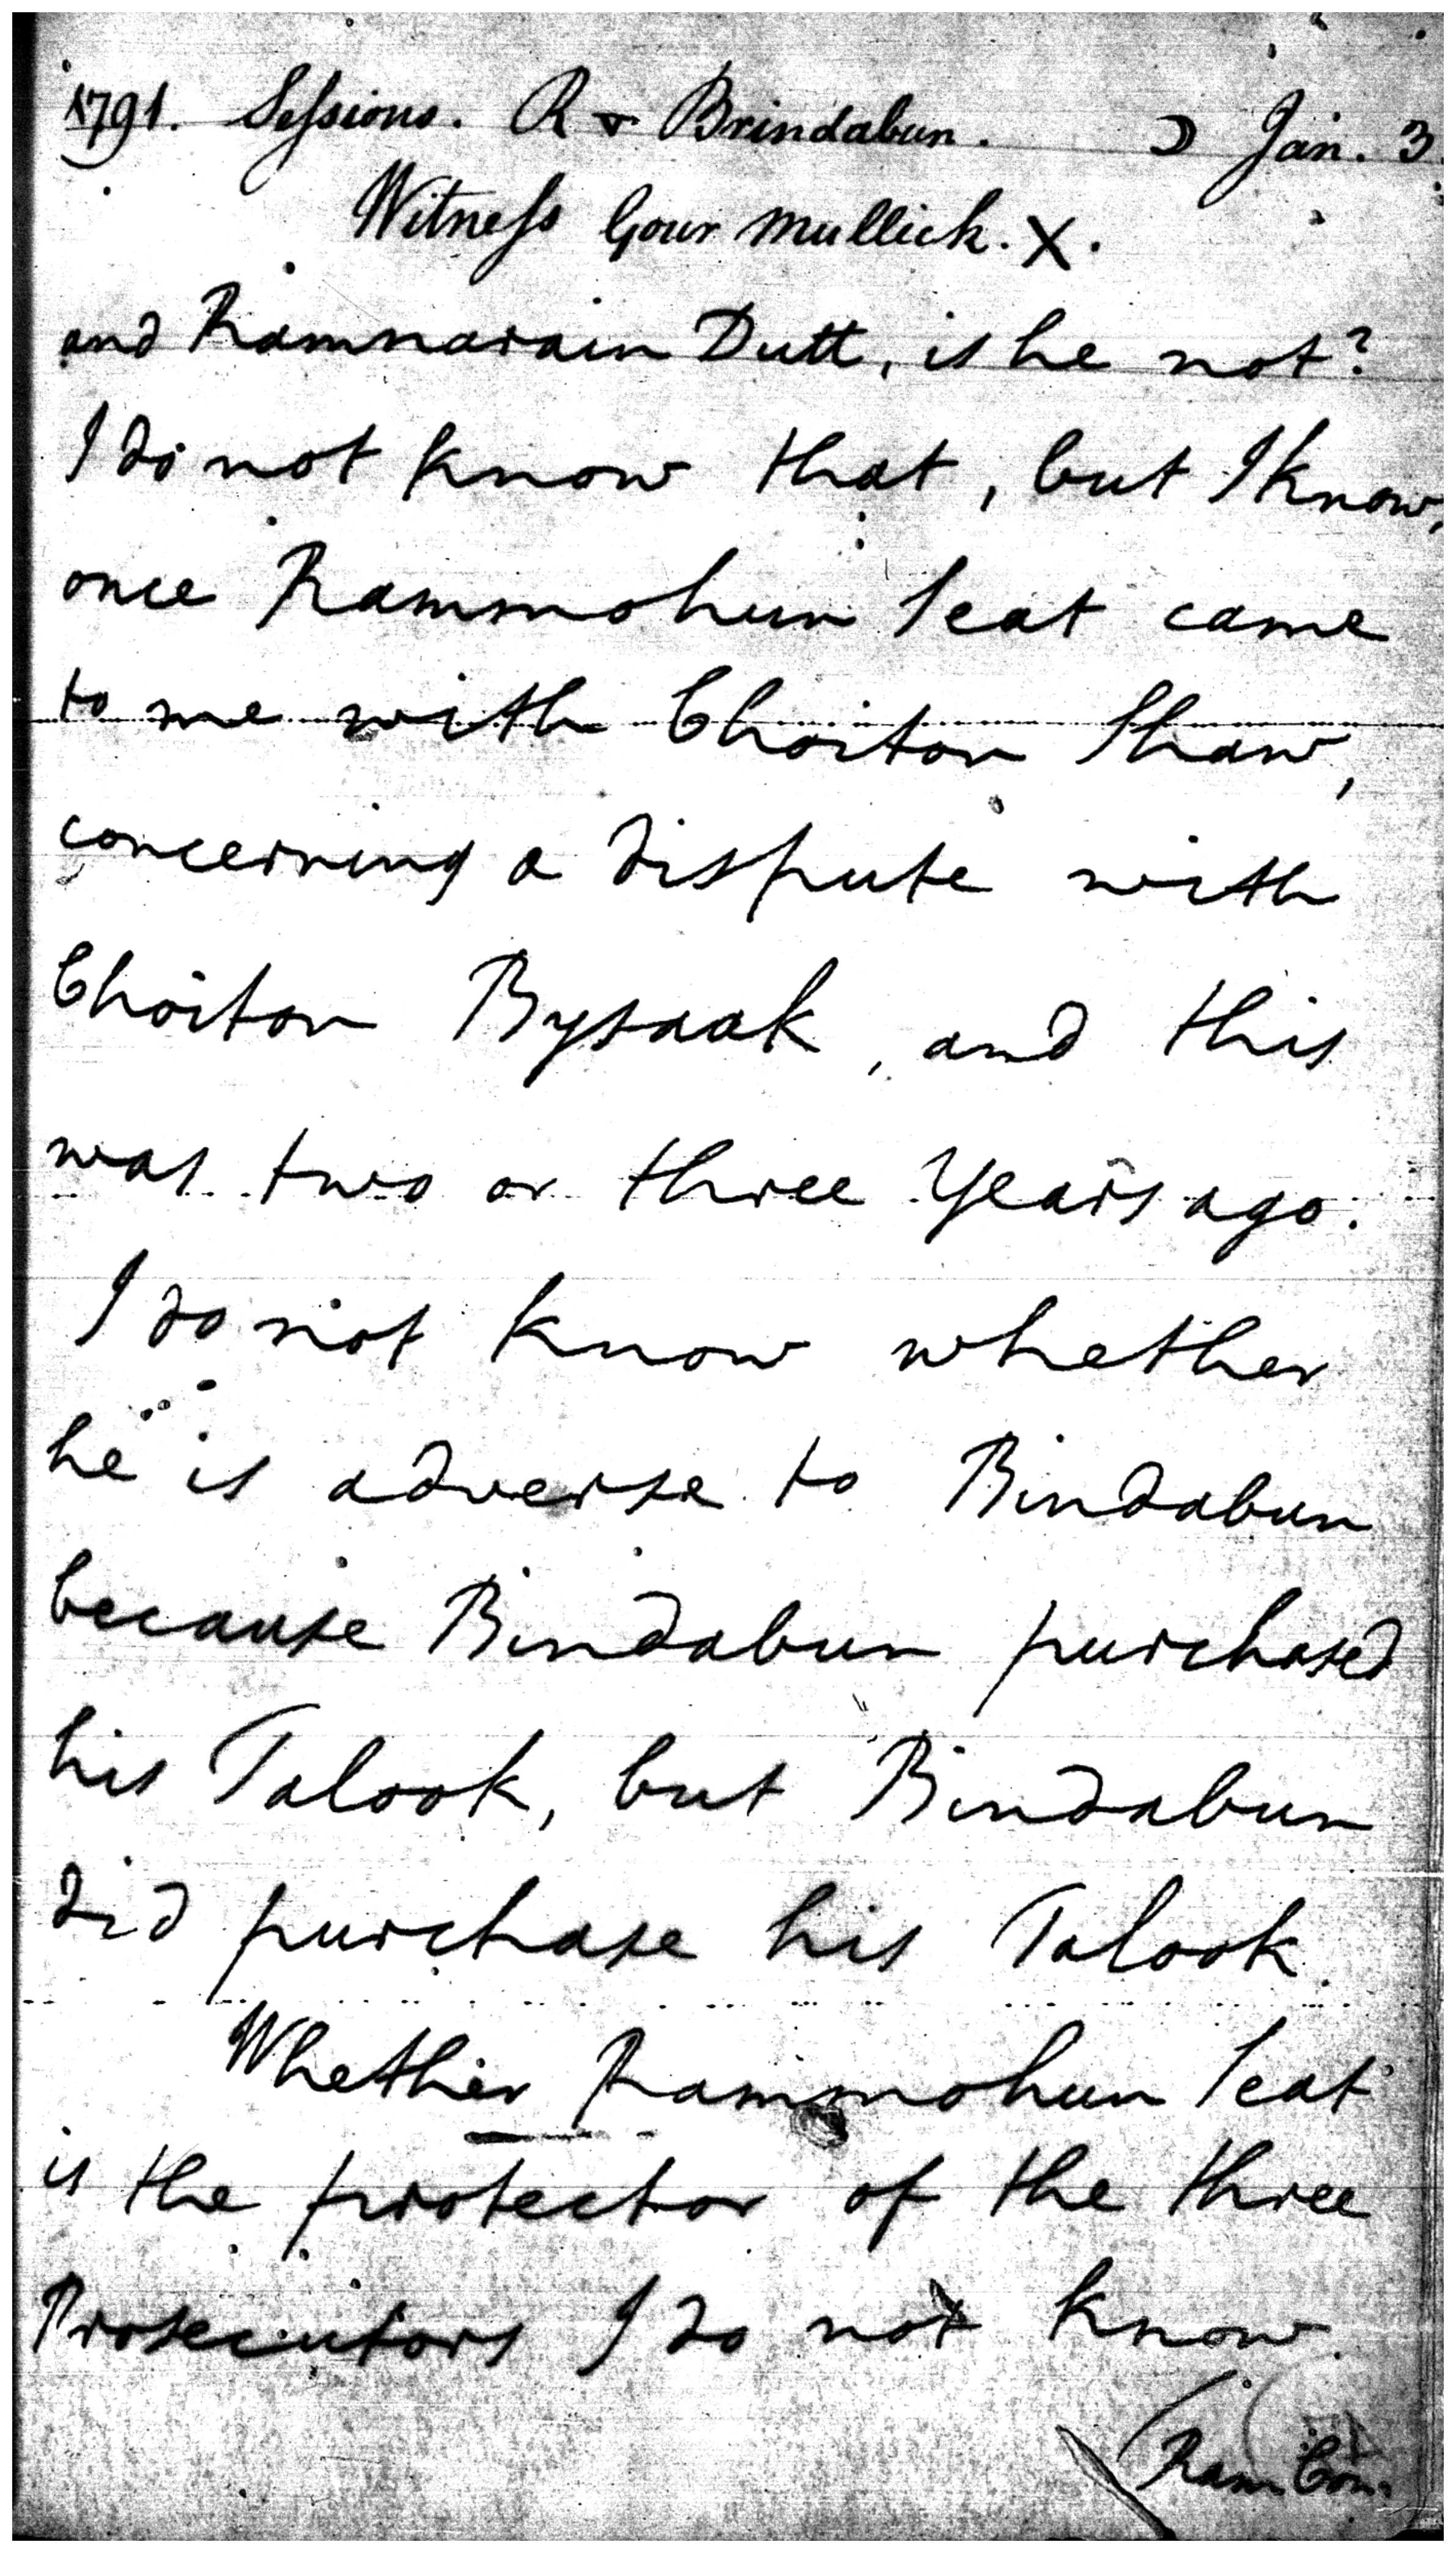 1791. Sessions. R v Brindabun. ☽ Jan. 3
Witness Gour Mullick. X.
and Ramnarain Dutt, is he not?
I do not know that, but I know,
once Rammohun Seat came
to me with Choiton Shaw,
concerning a dispute with
Choiton Bysaak, and this
was two or three Years ago.
I do not know whether
he is adverse to Bindabun
because Bindabun purchased
his Talook, but Bindabun
did purchase his Talook.
Whether Rammohun Seat
is the protector of the three
Prosecutors I do not know.
Ram